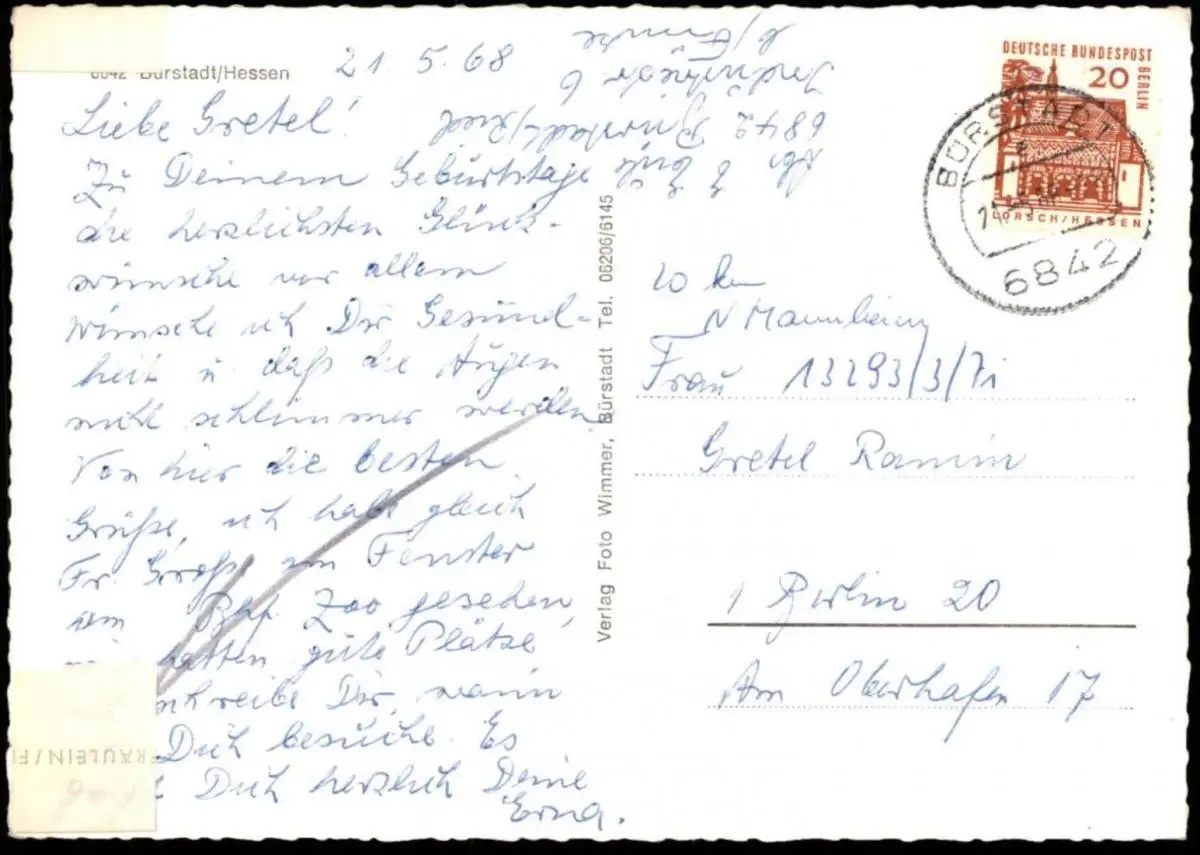 6842 Bürstadt/Hessen
21. 5. 68
Liebe Gretel!
Zu Deinem Geburtstage
die herzlichsten Glück-
wünsche vor allem
wünsche ich Dir Gesund-
heit u. daß die Augen
nicht schlimmer werden.
Von hier die besten
Grüße, ich habe gleich
Fr. Groß am Fenster
am Bhf. Zoo gesehen,
hatten gute Plätze
schreibe Dir, wann
Dich besuche. Es
Dich herzlich Deine
Erna.
Abs.
6842 Bürstadt/Ried
Industriestr 6
b/Funke
Verlag Foto Wimmer, Bürstadt Tel. 06206/6145
DEUTSCHE BUNDESPOST
BERLIN
20
LORSCH/HESSEN
BÜRSTADT
6842
20 km
N Mannheim
Frau 13293/3/7i
Gretel Ramin
1 Berlin 20
Am Oberhafen 17
FRÄULEIN/F